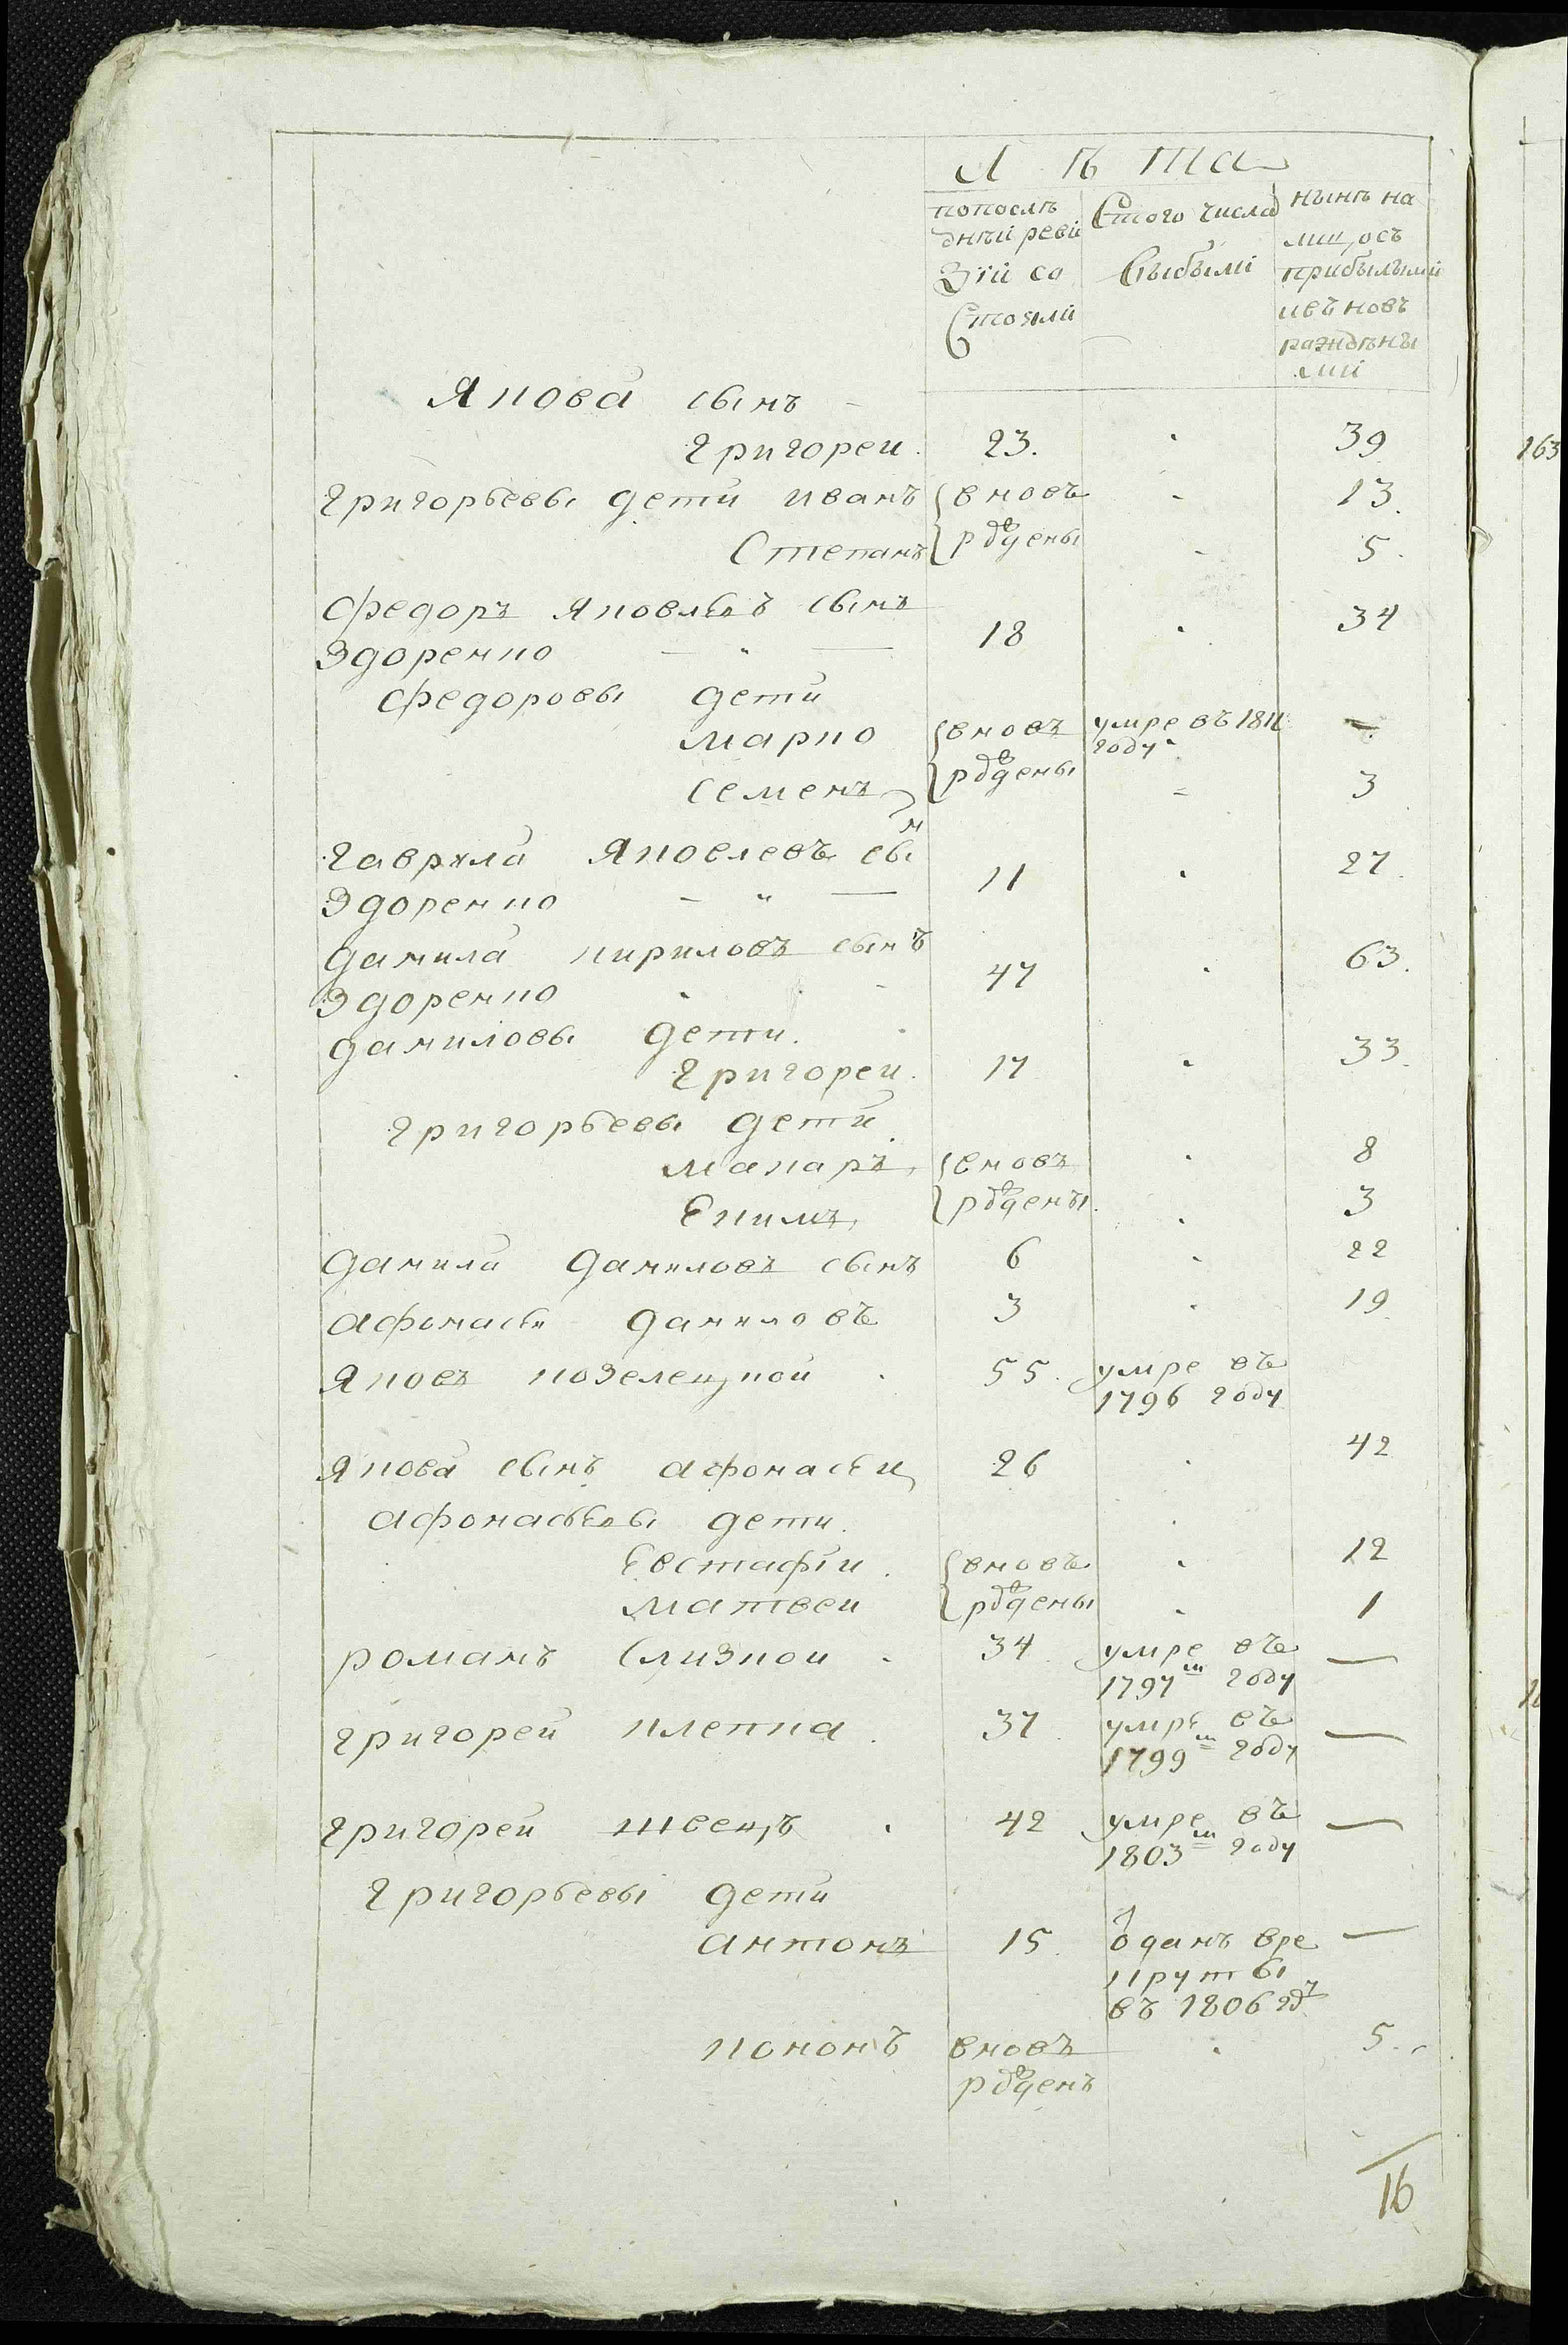 Лѣта
попослѣ
днѣй реви
зіи со
стояли
Стого числа
выбыли
нынѣ на
лиц,осъ
прибылыми
ивъновь
рождѣны
ми
Якова сынъ
Григореи 23. 39
Григорьевы дети иванъ вновь 13.
Степанъ рожdены 5.
Федоръ яковлевъ сынъ
Здоренко 18 34
Федоровы дети
марко вновь умре въ 1811 году —
Семенъ рождены 3
Гаврила Яковлевъ сын
Здоренко 11 27.
Данила кириловъ сынъ
Здоренко 47 63.
даниловы дети.
Григореи. 17 33.
Григорьевы дети
макаръ вновь 8
Екимъ рождены 3
Данила Даниловъ сынъ 6 22
Афонасеи Даниловъ 3 19
Яковъ козелецкой 55. умре въ
1796 году
Якова сынъ афонасеи 26 42
Афонасьевы дети.
Евстафіи вновь 12
Матвеи рождены 1
романъ Слизкои 34 умре въ —
1797м году
григореи клепка 37 умре въ —
1799м году
григореи швецъ 42 умре въ —
1803м году
Григорьевы дети
антонъ 15. отданъ вре —
круты
въ 1806 гд
кононъ вновь 5.
рожденъ
16
163